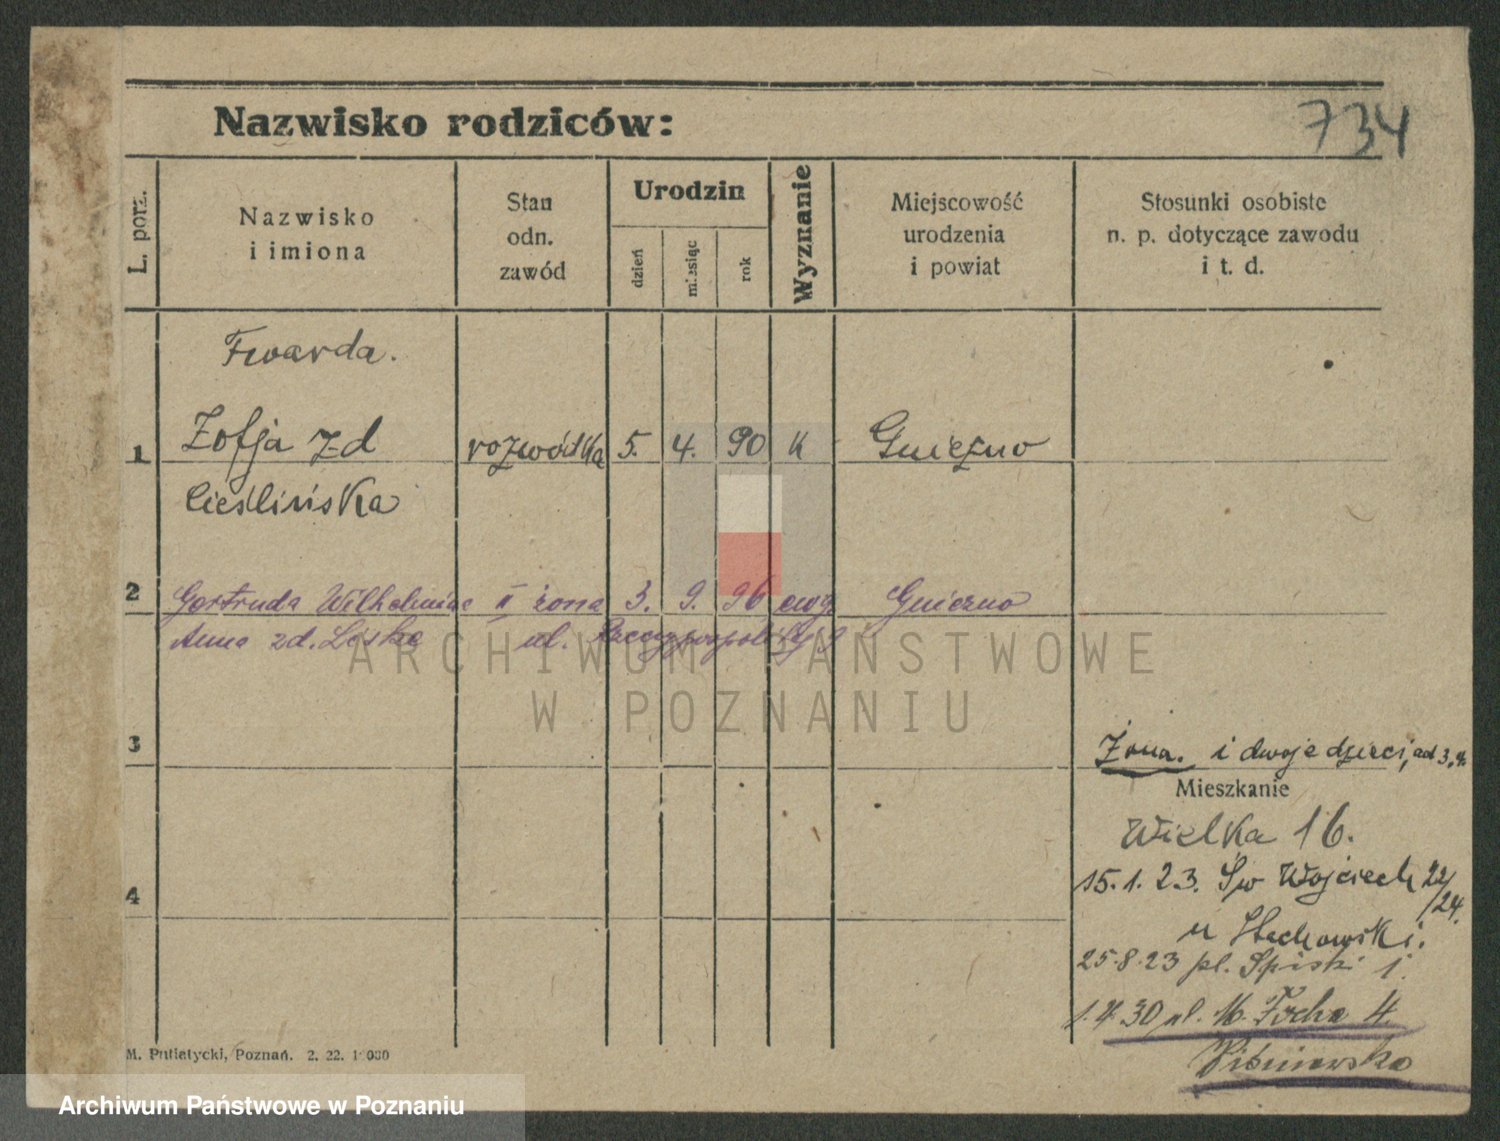 734
Nazwisko rodziców:
L. porz.
Nazwisko
i imiona
Stan
odn.
zawód
Urodzin
dzień
miesiąc
rok
Wyznanie
Miejscowość
urodzenia
i powiat
Stosunki osobiste
n. p. dotyczące zawodu
i t. d.
Twarda.
1 Zofja zd rozwódka 5. 4. 90 k Gniezno
Cieślińska
2 Gertruda Wilhelmina II żona 3. 9. 96 ewg Gniezno
Anna zd. Leske ul. Rzeczypospolitej 9
ARCHIWUM PAŃSTWOWE
W POZNANIU
3
Żona. i dwoje dzieci, ad 3, 4.
Mieszkanie
Wielka 16.
15.1.23. Św Wojciech 22/24.
4
u Stachowski.
25.8.23 pl. Spiski 1.
1.4.30 ul. M. Focha 4.
Wiśniewska
M. Putiatycki, Poznań. 2. 22. 1 000
Archiwum Państwowe w Poznaniu